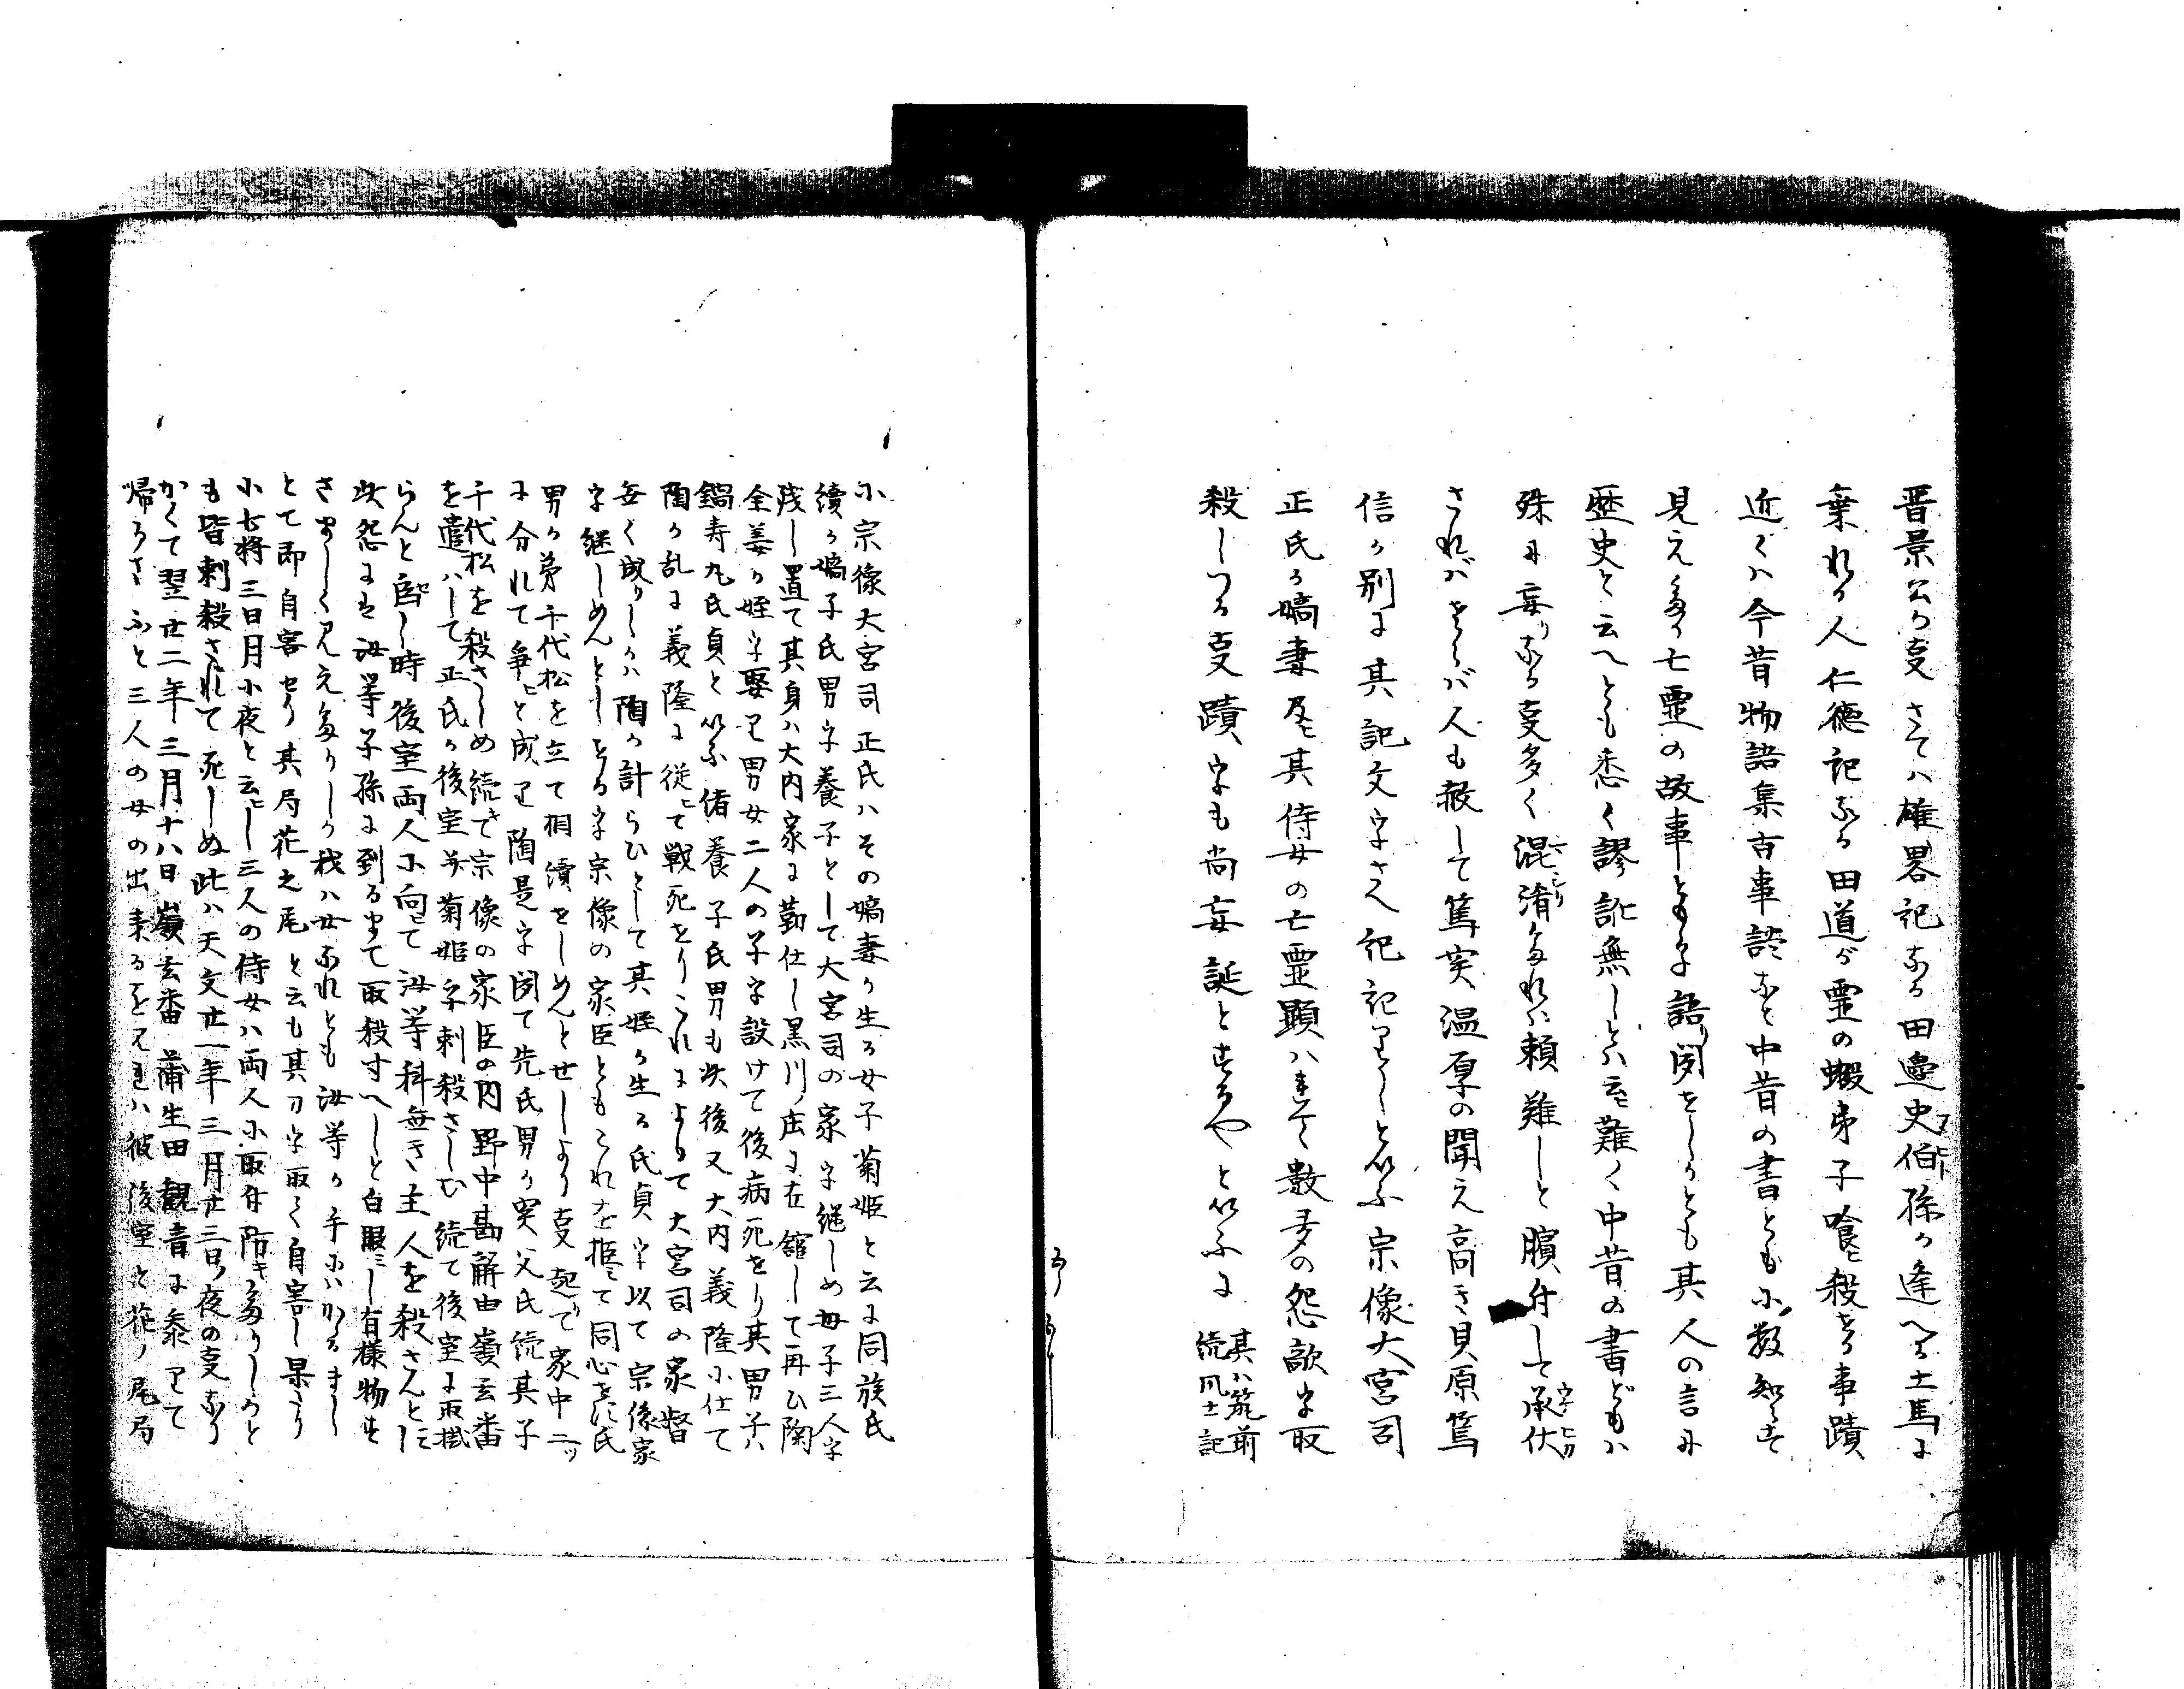 晋景公の事さては雄略記なる田邊史伯孫が逢へる土馬に
棄れる人仁徳記なる田道が霊の蝦弟子喰ヒ殺せる事蹟
近くハ今昔物語集古事談など中昔の書ともに数知らず
見え多る亡霊の故事ともを語り聞をしかとも其人の言に
歴史と云へとも悉く謬訛無しとハ云ヒ難く中昔の書どもハ
殊に妄りなる事多く混淆多れハ頼難しと臆付して承伏
されバさらバ人も赦して篤実温厚の聞え高き貝原篤
信が別に其記文字さへ記記りしと以ふ宗像大宮司
正氏が嫡妻及ヒ其侍女の亡霊顕ハれて数多の怨敵を取
殺しつる事蹟をも尚妄誕とするやと以ふに 其ハ筑前続風土記
に宗像大宮司正氏ハその嫡妻が生る女子菊姫と云に同族氏
續が嫡子氏男を養子として大宮司の家を継しめ母子三人を
残し置て其身ハ大内家に勤仕し黒川ノ庄に在館して再ひ陶
全姜が姪を娶り男女二人の子を設けて後病死せり其男子ハ
鍋寿丸氏貞と以ふ偖養子氏男も此後又大内義隆に仕て
陶が乱に義隆に従ヒて戦死せりこれによりて大宮司の家督
無く成りしかハ陶が計らひとして其姪が生る氏貞を以て宗像家
を継しめんとしけるを宗像の家臣ともこれを拒ミて同心せず氏
男が弟千代松を立て相續をしめんとせしより事起りて家中二ツ
に分れて争ヒと成り陶是を聞て先氏男が実父氏続其子
千代松を殺さしめ続きて宗像の家臣の内野中勘解由嶺玄番
を遣ハして正氏が後室并菊姫を刺殺さしむ続て後室に取掛
らんと為し時後室両人に向ヒて汝等科無き主人を殺さんとに
此怨には汝等子孫に到るまて取殺すへしと白眼ミし有様物す
さましく見え多りしか我ハ女なれとも汝等か手にハかゝるまし
とて即自害せり其局花之尾と云も其刀を取て自害し果たり
小七将三日月小夜と云し三人の侍女ハ両人に取付防き多りしかと
も皆刺殺されて死しぬ此ハ天文廿一年三月廿三日ノ夜の事なり
かくて翌廿二年三月十八日嶺玄番蒲生田観音に参りて
帰るさふと三人の女の出来るを見れハ彼後室と花ノ尾局